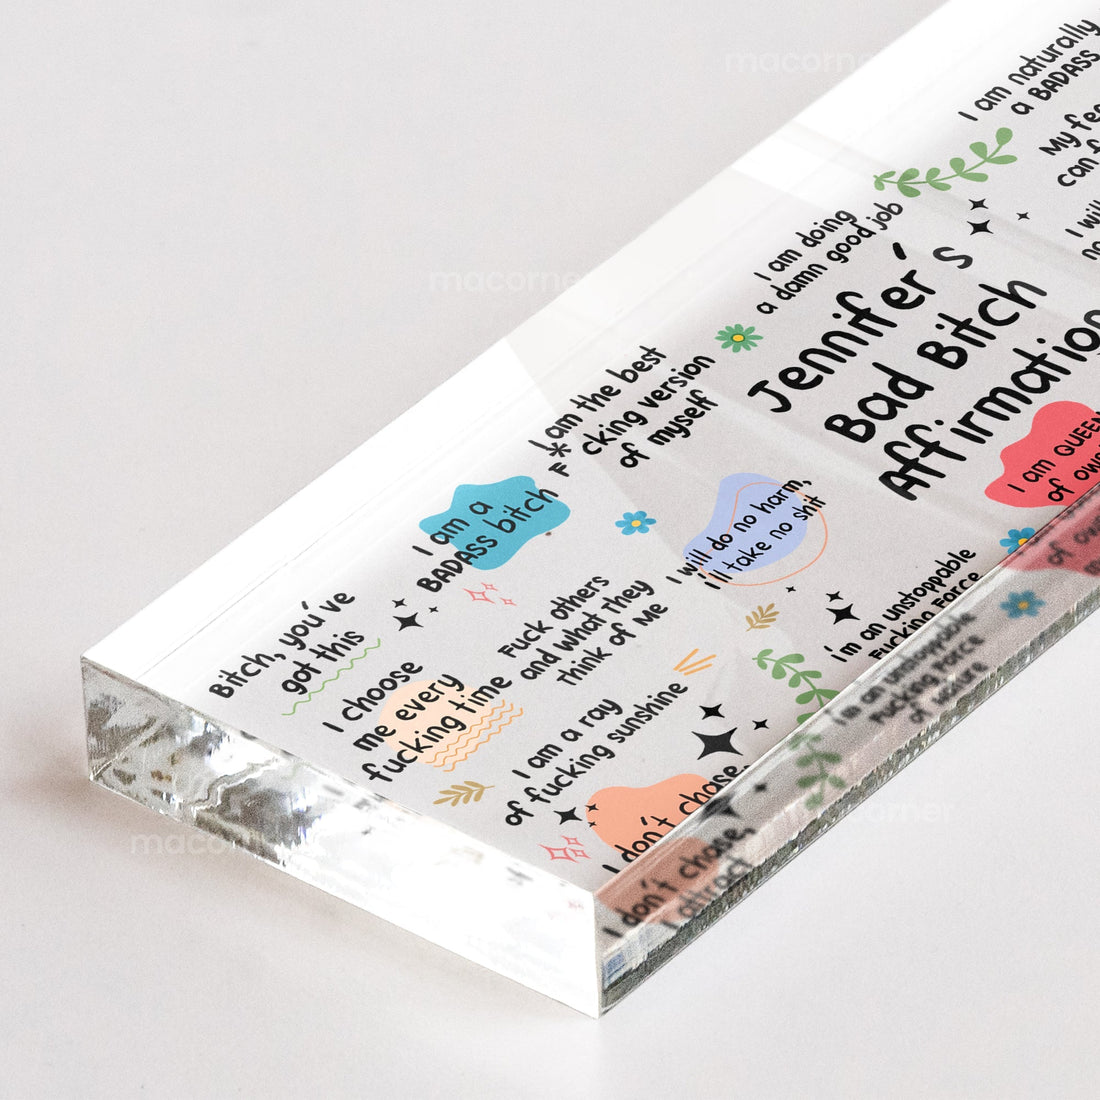 macorner
I am naturally
a BADASS
My
can
I will
I am doing
a damn good job
Jennifer's
Bad Bitch
Affirmation
I am the best
F*cking version
of myself
I am QUEEN
of
I am a
BADASS bitch
I will do no harm,
i'll take no shit
I'm an unstoppable
Fucking Force
of nature
Bitch, you've
got this
Fuck others
and what they
think of Me
I choose
me every
fucking time
I am a ray
of fucking sunshine
I don't chase,
I attract
macorner
macorner
macorner